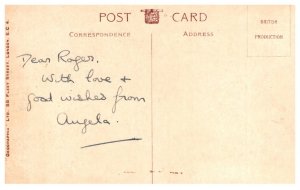 POST CARD
CORRESPONDENCE
ADDRESS
BRITISH
PRODUCTION
Dear Roger,
With love &
good wishes from
Angela.
LTD. 62 FLEET STREET, LONDON, E.C.4.